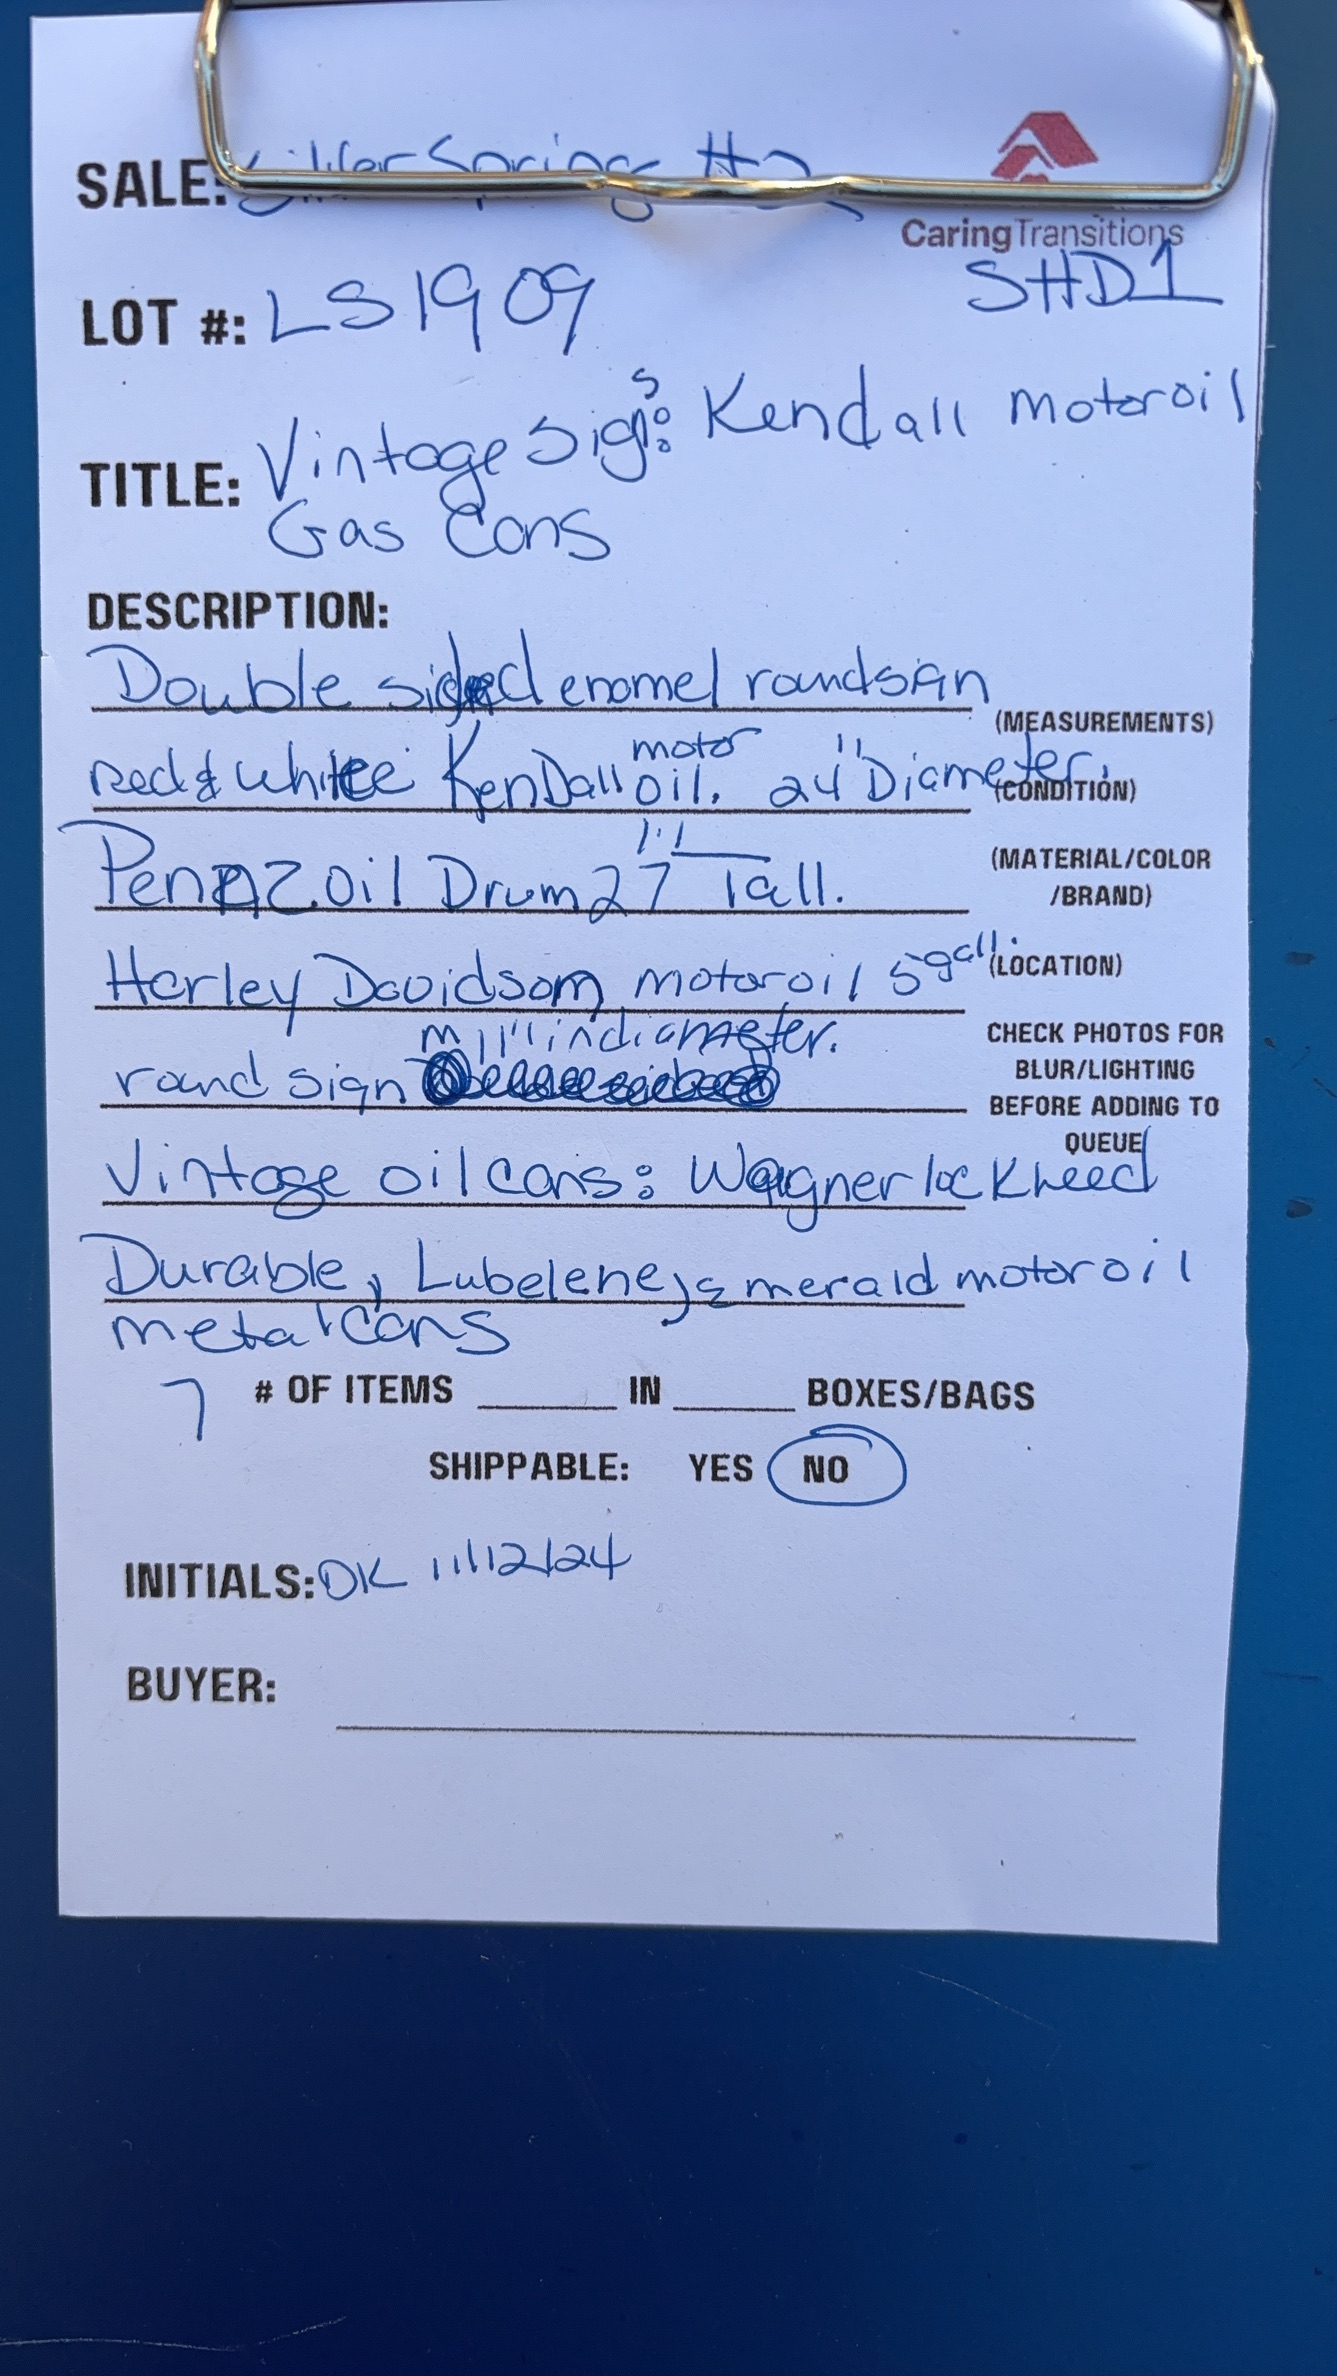 SALE: Silver Spring #2
CaringTransitions
SHD1
LOT #: LS1909
TITLE: Vintage Signs: Kendall motoroil
Gas Cans
DESCRIPTION:
Double sided enamel round sign
(MEASUREMENTS)
red & white KenDall motor oil. 24" Diameter.
(CONDITION)
Pennzoil Drum 27" Tall.
(MATERIAL/COLOR
/BRAND)
Harley Davidson motoroil 5 gall.
(LOCATION)
round sign 11" in diameter.
CHECK PHOTOS FOR
BLUR/LIGHTING
BEFORE ADDING TO
QUEUE
Vintage oil cans: Wagner lockheed
Durable, Lubelene, Emerald motor oil
metal cans
7 # OF ITEMS ______ IN ______ BOXES/BAGS
SHIPPABLE: YES NO
INITIALS: DK 11/12/24
BUYER: